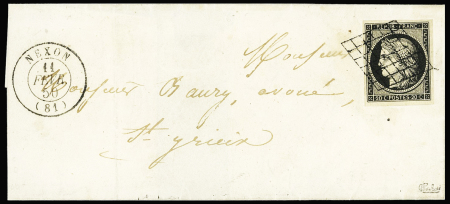 NEXON
11
FEVR.
50
(81)
REPUB. FRANC.
20 C POSTES 20 C
Monsieur
Monsieur Baury, avoué,
St yrieix